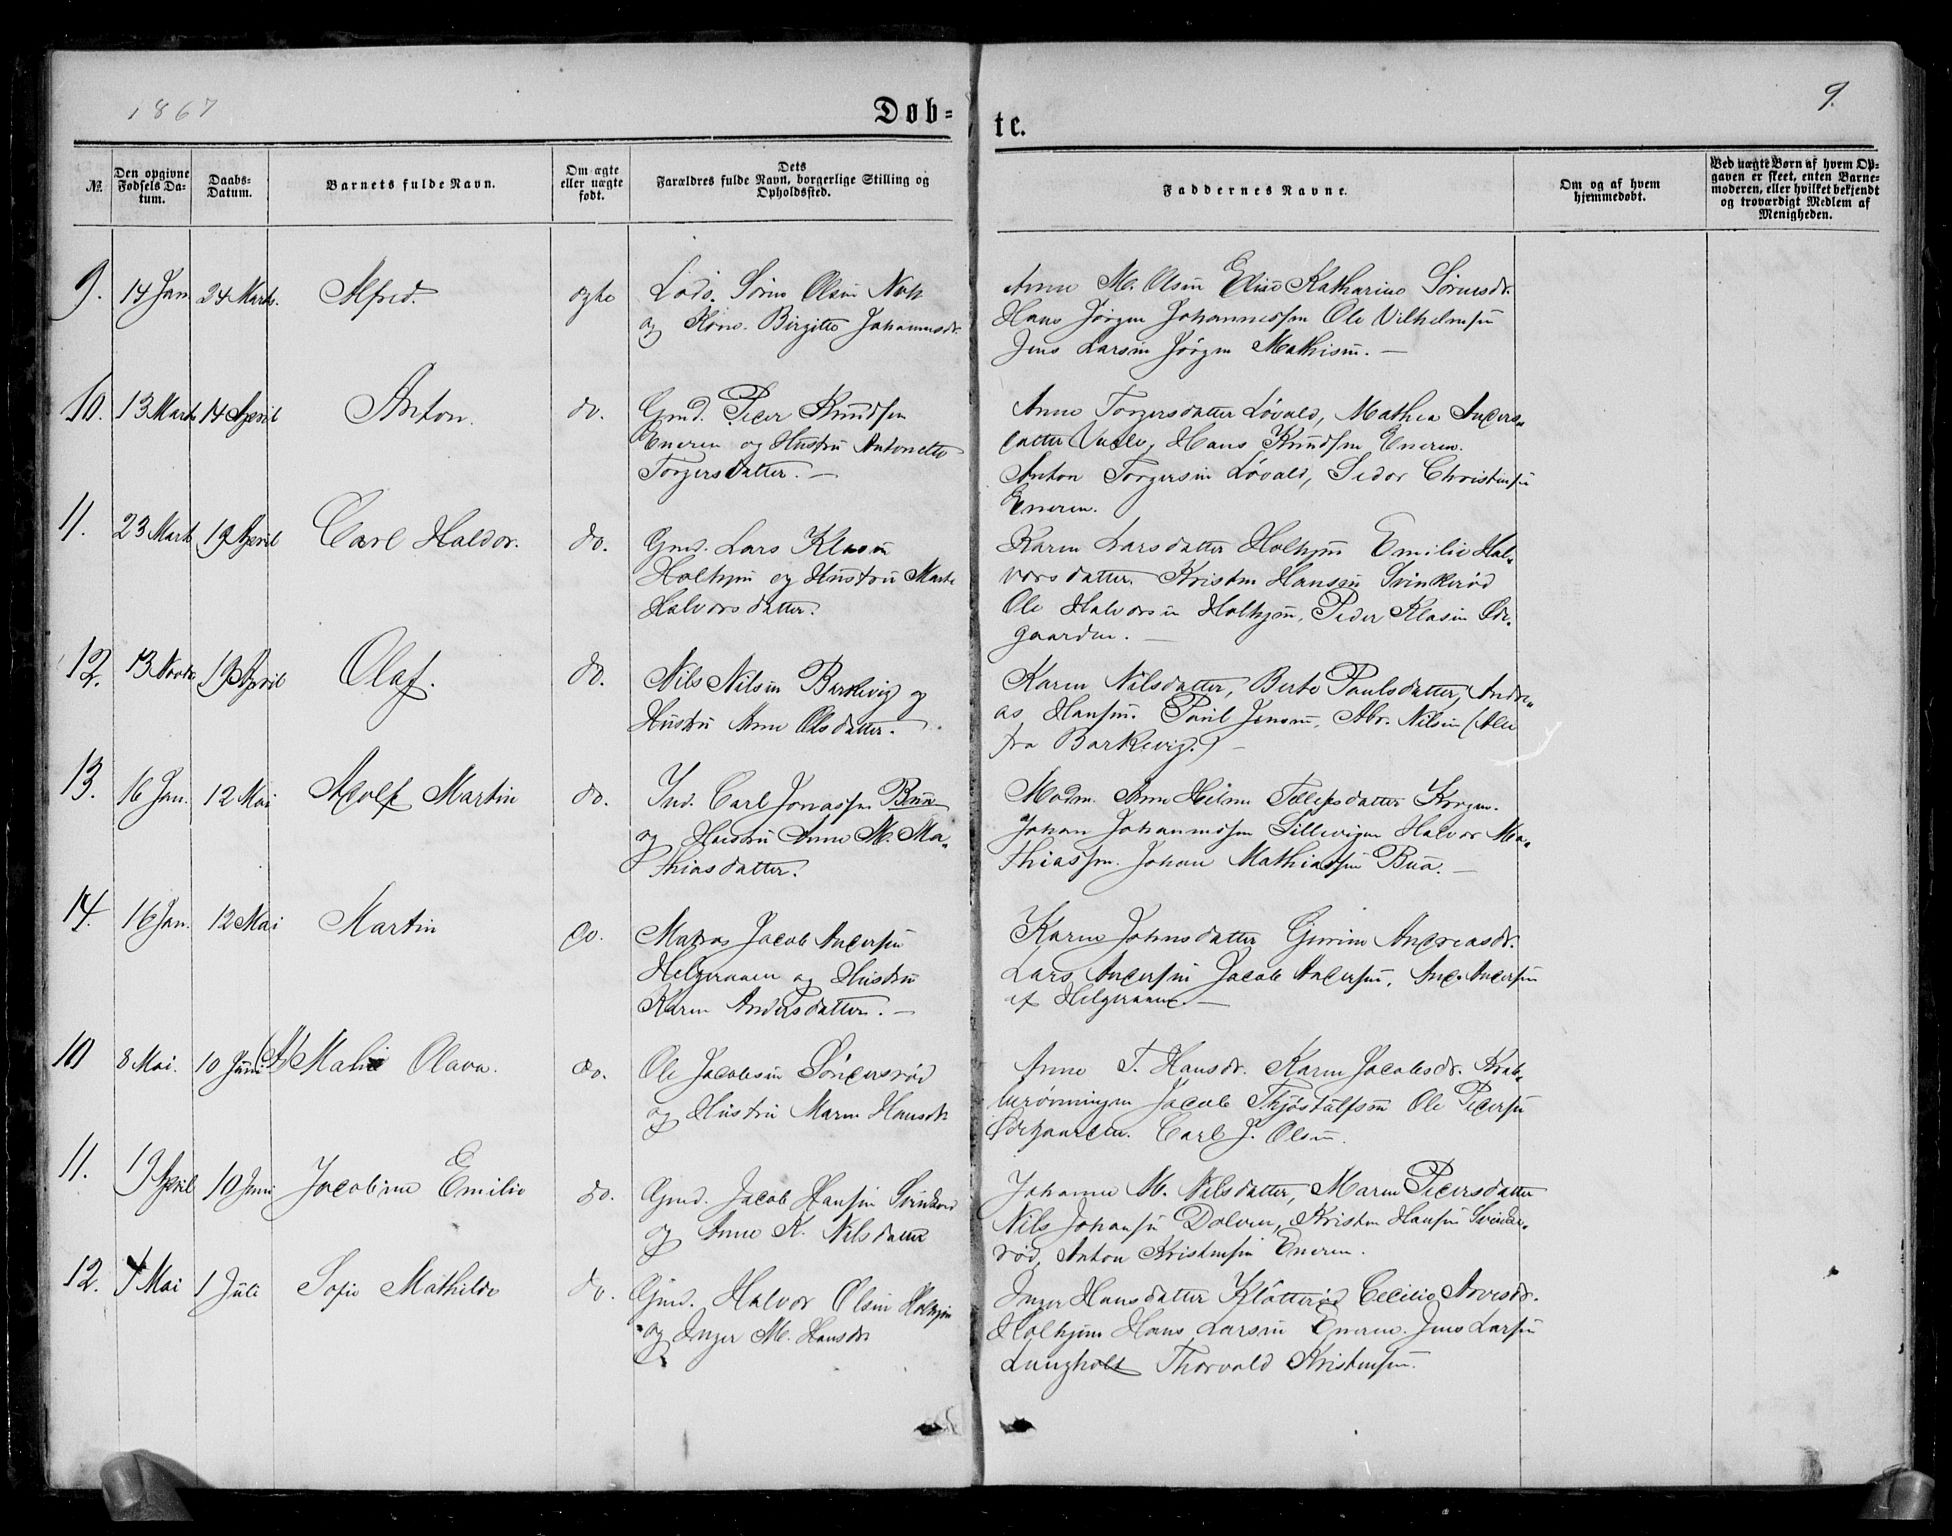 1867
Døb-
te.
9.
№.
Den opgivne Fødsels Datum.
Daabs-Datum.
Barnets fulde Navn.
Om ægte eller uægte født.
Dets Forældres fulde Navn, borgerlige Stilling og Opholdssted.
Faddernes Navne.
Om og af hvem hjemmedøbt.
Ved uægte Børn af hvem Opgaven er skeet, enten Barnemoderen, eller hvilket bekjendt og troværdigt Medlem af Menigheden.
9. 14 Jan. 24 Marts. Alfred. ægte
Lods. Sørm Olsen
og Kone. Birgitte Johannesdr.
Anne M. Olsen Elise Katharine Sørensdr.
Hans Jørgen Johannessen Ole Vilhelmsen
Jens Larsen Jørgen Mathisen. —
10. 13 Marts 14 April Anton. do.
Gmd. Peder Knudsen
Eneren og Hustru Antonette
Torgersdatter. —
Anne Torgersdatter Løvald, Mathea Anders-
datter Hans Knudsen Eneren.
Anton Torgersen Løvald, Sedor Christensen
Eneren.
11. 23 Marts 19 April Carl Haldor. do.
Gmd. Lars Klasen
Holhjem og Hustru Marte
Halvorsdatter.
Karen Larsdatter Holhjem Emilie Hal-
vorsdatter. Kristen Hansen Svinkerød
Ole Halvorsen Holhjem, Peder Klasen Øde-
gaarden. —
12. 13 Novbr 19 April Olaf. do.
Nils Nilsen Barkevig og
Hustru Anne Olsdatter.
Karen Nilsdatter, Berte Paulsdatter, Andre-
as Hansen. Paul Jensen, Abr. Nilsen (Alle
fra Barkevig.) —
13. 16 Jan. 12 Mai Adolf Martin do.
Ind. Carl Jonassen Bua
og Hustru Anne M. Ma-
thiasdatter.
Madm. Anne Helene Tollefsdatter
Johan Johannessen Lillevigen Halvor Ma-
thiassen. Johan Mathiassen Bua. —
14. 16 Jan. 12 Mai Martin do.
Matros Jacob Andersen
Helgeraaen og Hustru
Karen Andersdatter. —
Karen Johnsdatter Gurine Andreasdr.
Lars Andersen Jacob Andersen, And. Andersen
af Helgeraaen. —
10 8 Mai. 10 Juni Malie Olava. do.
Ole Jacobsen Søndersrød
og Hustru Maren Hansdr.
Anne T. Hansdr. Karen Jacobsdr. Krab-
berønningen Jacob Thjøstolfsen Ole Pedersen
Ødegaarden. Carl J. Olsen.
11. 19 April 10 Juni Jacobine Emilie do.
Gmd. Jacob Hansen Svinkerød
og Anne K. Nilsdatter
Johanne M. Nilsdatter, Maren Pedersdatter
Nils Johansen Dolven, Kristen Hansen Svinke-
rød, Anton Kristensen Eneren.
12. Mai 1 Juli Sofie Mathilde do.
Gmd. Halvor Olsen Holhjem
og Inger M. Hansdr
Inger Hansdatter Klåtterød Cecilie Arvesdr.
Holhjem Hans Larsen Eneren. Jens Larsen
Langholt Thorvald Kristensen.